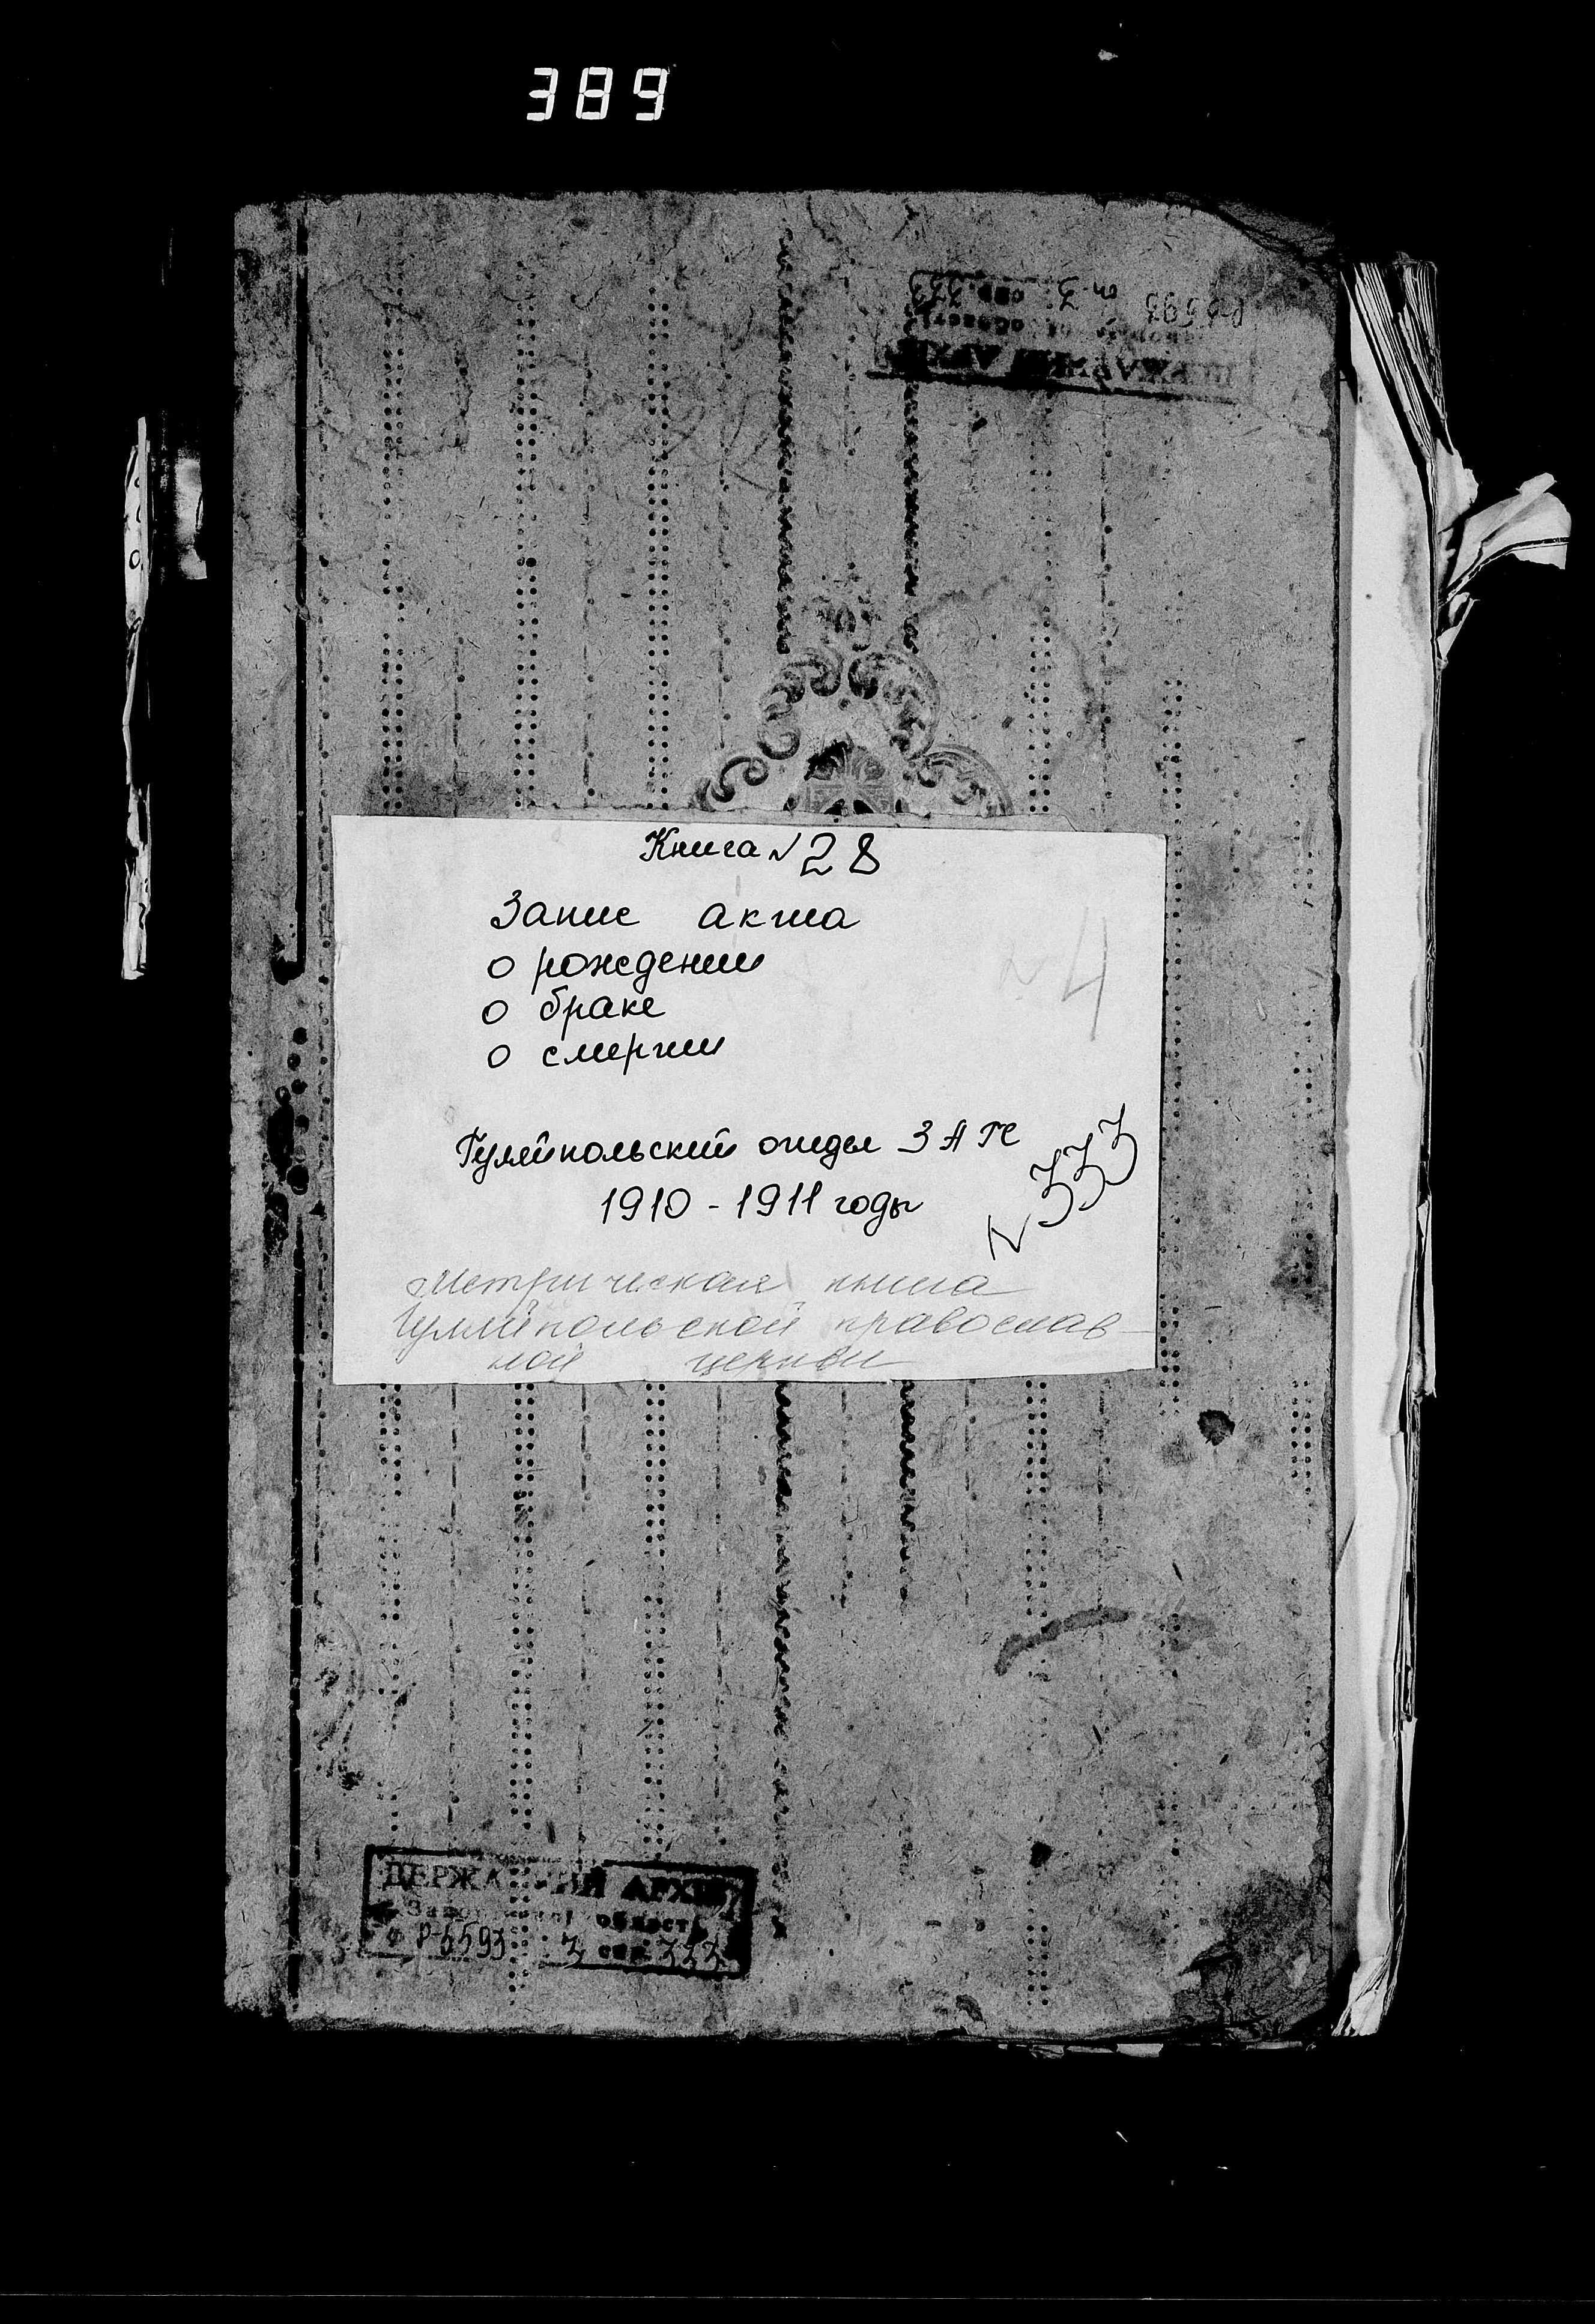 389
Книга N 28
Запис акта
о рождении
о браке
о смерти
N 4
Гуляйпольский отдел ЗАГС
1910 - 1911 годы
N 333
Метрическая книга
Гуляйпольской православ-
ной церкви
ДЕРЖАВНИЙ АРХІВ
області
Р-5593 3 спр. 333